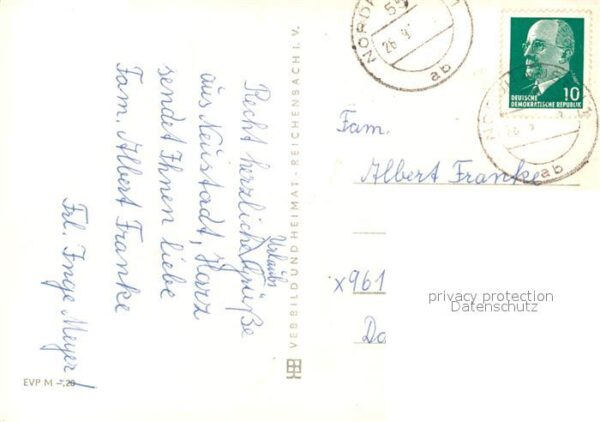 Recht herzliche Urlaubs
Grüße
aus Neustadt, Harz
sendet Ihnen liebe
Fam. Albert Franke
Frl. Inge Meyer!
EVP M –,20
VEB BILD UND HEIMAT · REICHENBACH I. V.
ab
10
DEUTSCHE
DEMOKRATISCHE REPUBLIK
ab
Fam.
Albert Franke
x961
Do
privacy protection
Datenschutz